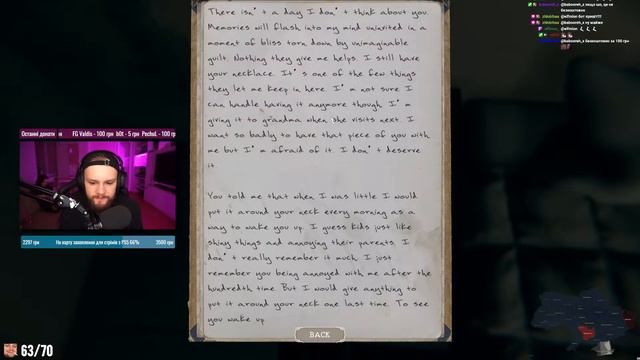 There isn't a day I don't think about you.
Memories will flash into my mind uninvited in a
moment of bliss torn down by unimaginable
guilt. Nothing they give me helps. I still have
your necklace. It's one of the few things
they let me keep in here. I'm not sure I
can handle having it anymore though. I'm
giving it to grandma when she visits next. I
want so badly to have that piece of you with
me but I'm afraid of it. I don't deserve
it.
You told me that when I was little I would
put it around your neck every morning as a
way to wake you up. I guess kids just like
shiny things and annoying their parents. I
don't really remember it much. I just
remember you being annoyed with me after the
hundredth time. But I would give anything to
put it around your neck one last time. To see
you wake up.
BACK
Останні донати
н FG Valdis - 100 грн b0t - 5 грн Pechul - 100 гр
2297 грн
На карту захоплення для стрімів з PS5 66%
3500 грн
63/70